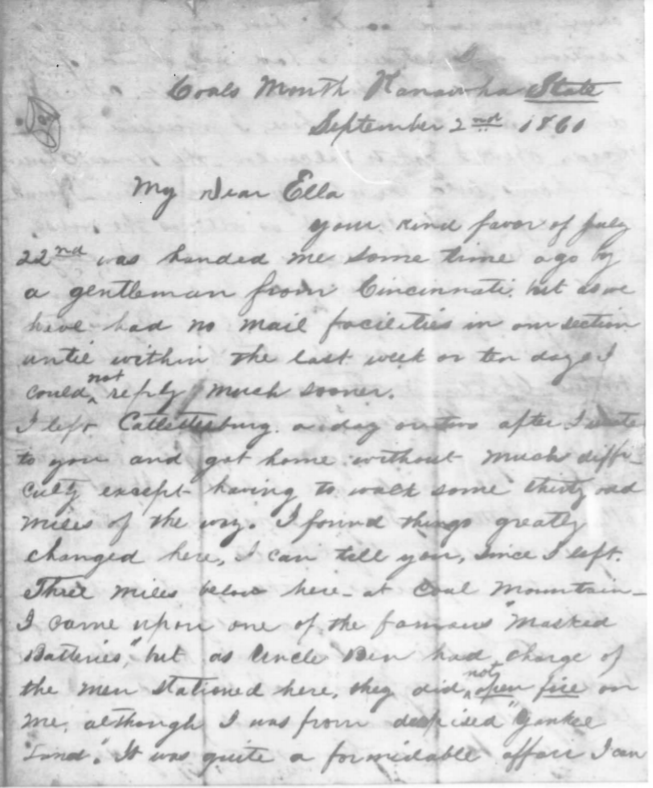 Coals Mouth Kanawha State
September 2nd 1861
My Dear Ella
your kind favor of July
22nd was handed me some time ago by
a gentleman from Cincinnati, but as we
have had no mail facilities in our section
until within the last week or ten days I
could not reply much sooner.
I left Catlettsburg a day or two after I wrote
to you and got home without much diffi-
culty except having to walk some thirty odd
miles of the way. I found things greatly
changed here, I can tell you, since I left.
Three miles below here - at Coal Mountain -
I came upon one of the famous "Masked
Batteries," but as Uncle Ben had charge of
the men stationed here, they did not open fire on
me, although I was from despised "Yankee
Land". It was quite a formidable affair I can